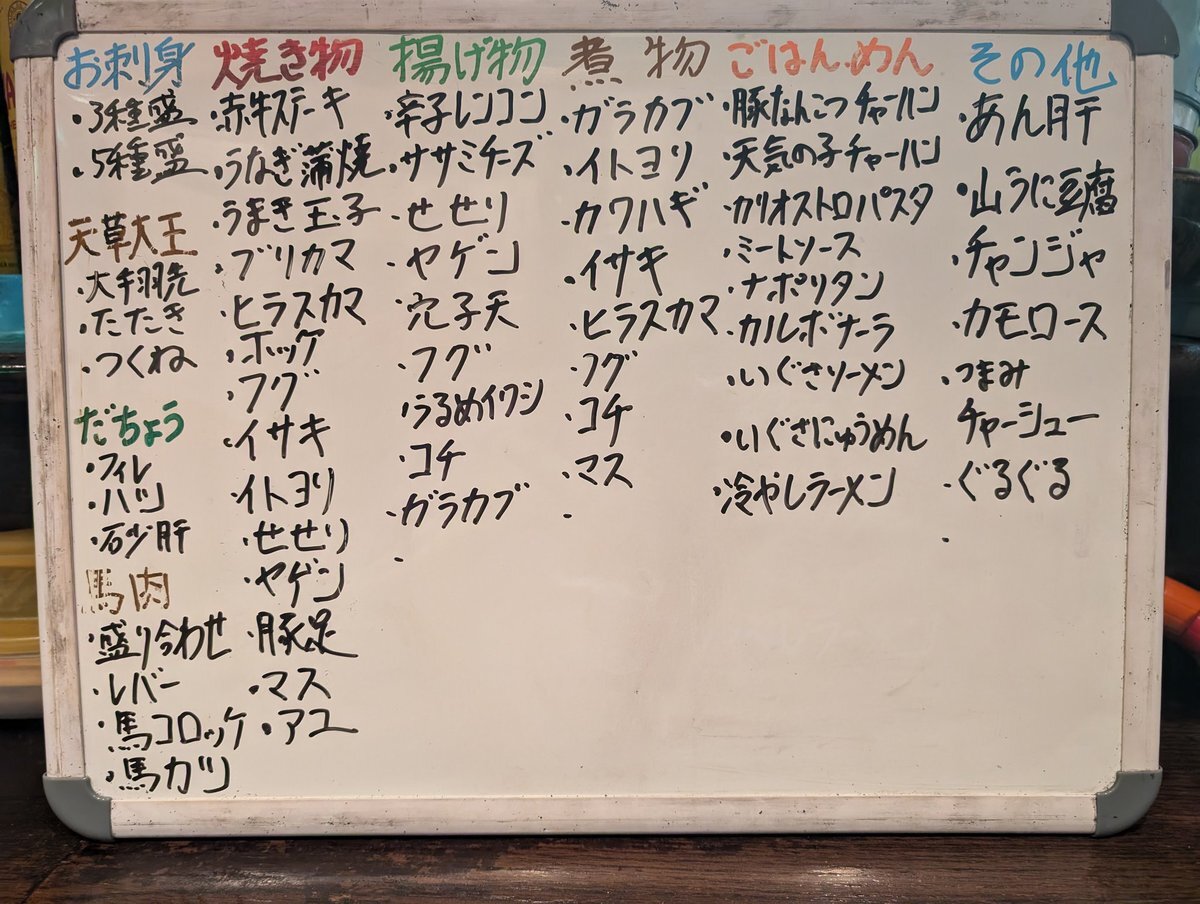 お刺身
・3種盛
・5種盛
天草大王
・大手羽先
・たたき
・つくね
だちょう
・フィレ
・ハツ
・砂肝
馬肉
・盛り合わせ
・レバー
・馬コロッケ
・馬カツ
焼き物
・赤牛ステーキ
・うなぎ蒲焼
・うまき玉子
・ブリカマ
・ヒラスカマ
・ホッケ
・フグ
・イサキ
・イトヨリ
・せせり
・ヤゲン
・豚足
・マス
・アユ
揚げ物
・辛子レンコン
・ササミチーズ
・せせり
・ヤゲン
・穴子天
・フグ
・うるめイワシ
・コチ
・ガラカブ
・
煮物
・ガラカブ
・イトヨリ
・カワハギ
・イサキ
・ヒラスカマ
・フグ
・コチ
・マス
・
ごはん.めん
・豚なんこつチャーハン
・天気の子チャーハン
・カリオストロパスタ
・ミートソース
・ナポリタン
・カルボナーラ
・いぐさソーメン
・いぐさにゅうめん
・冷やしラーメン
その他
・あん肝
・山うに豆腐
・チャンジャ
・カモロース
・つまみ
チャーシュー
・ぐるぐる
・